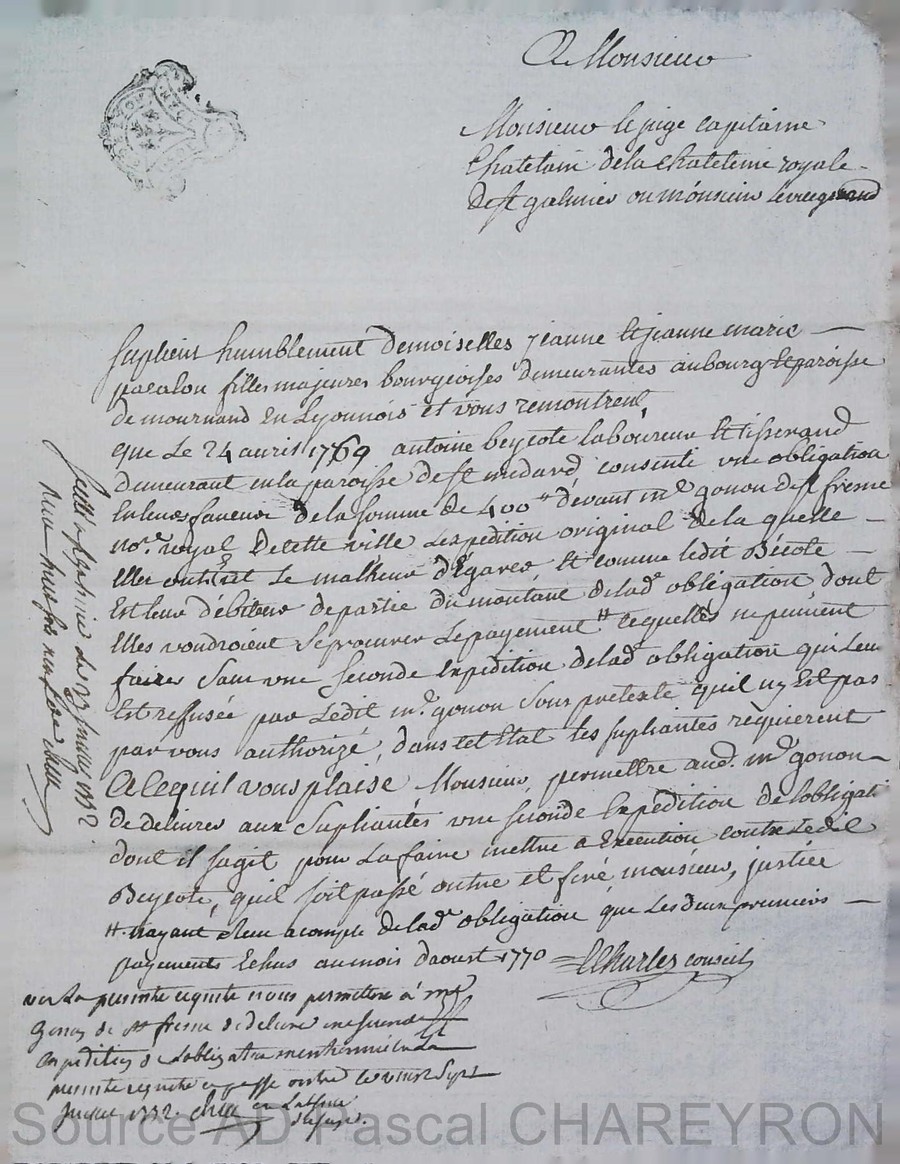 A Monsieur
Monsieur le juge capitaine
Chatelain de la chatelenie royale
de st galmier ou monsieur
suplient humblement demoiselles jeanne et jeanne marie
pacalon filles majeures bourgeoises demeurantes au bourg et paroisse
de mournand en Lyonnois et vous remontrent
que Le 24 avril 1769 antoine beycote laboureur et tisserand
demeurant en la paroisse de st medard consenti une obligation
en leur faveur de la somme de 400ᵗᵗ devant mᵉ gonon de st fresne
noʳᵉ royal de cette ville Lexpedition original de la quelle
elles ont eut Le malheur d'Egarer et comme ledit Bécote
est leur débiteur de partie du montant de ladᵉ obligation dont
elles voudroient se procurer Le payement ᵗᵗ ce quelles ne peuvent
faires sans une seconde expedition de ladᵉ obligation qui leur
est reffusée par Ledit mᵉ gonon sous pretexte quil ny est pas
par vous authorizé, dans cet Etat les supliantes requierent
A ce quil vous plaise Monsieur, permettre aud. mᵉ gonon
de delivrer aux supliantes une seconde expedition de lobligati
dont il sagit pour La faire mettre a Execution contre Ledit
Beycote, quil soit passé outre et feré monsieur, justice
ᵗᵗ nayant Reçu acompte de ladᵉ obligation que Les deux premiers
payements Echus au mois daoust 1770 Charles conseil
veu La presente requete nous permettons à mᵉ
Gonon de st fresne de delivrer une seconde
expedition de Lobligation mentionnée en La
presente requete et passe outre ce vingt sept
janvier 1772.
galmier Le 27 janvier 1772